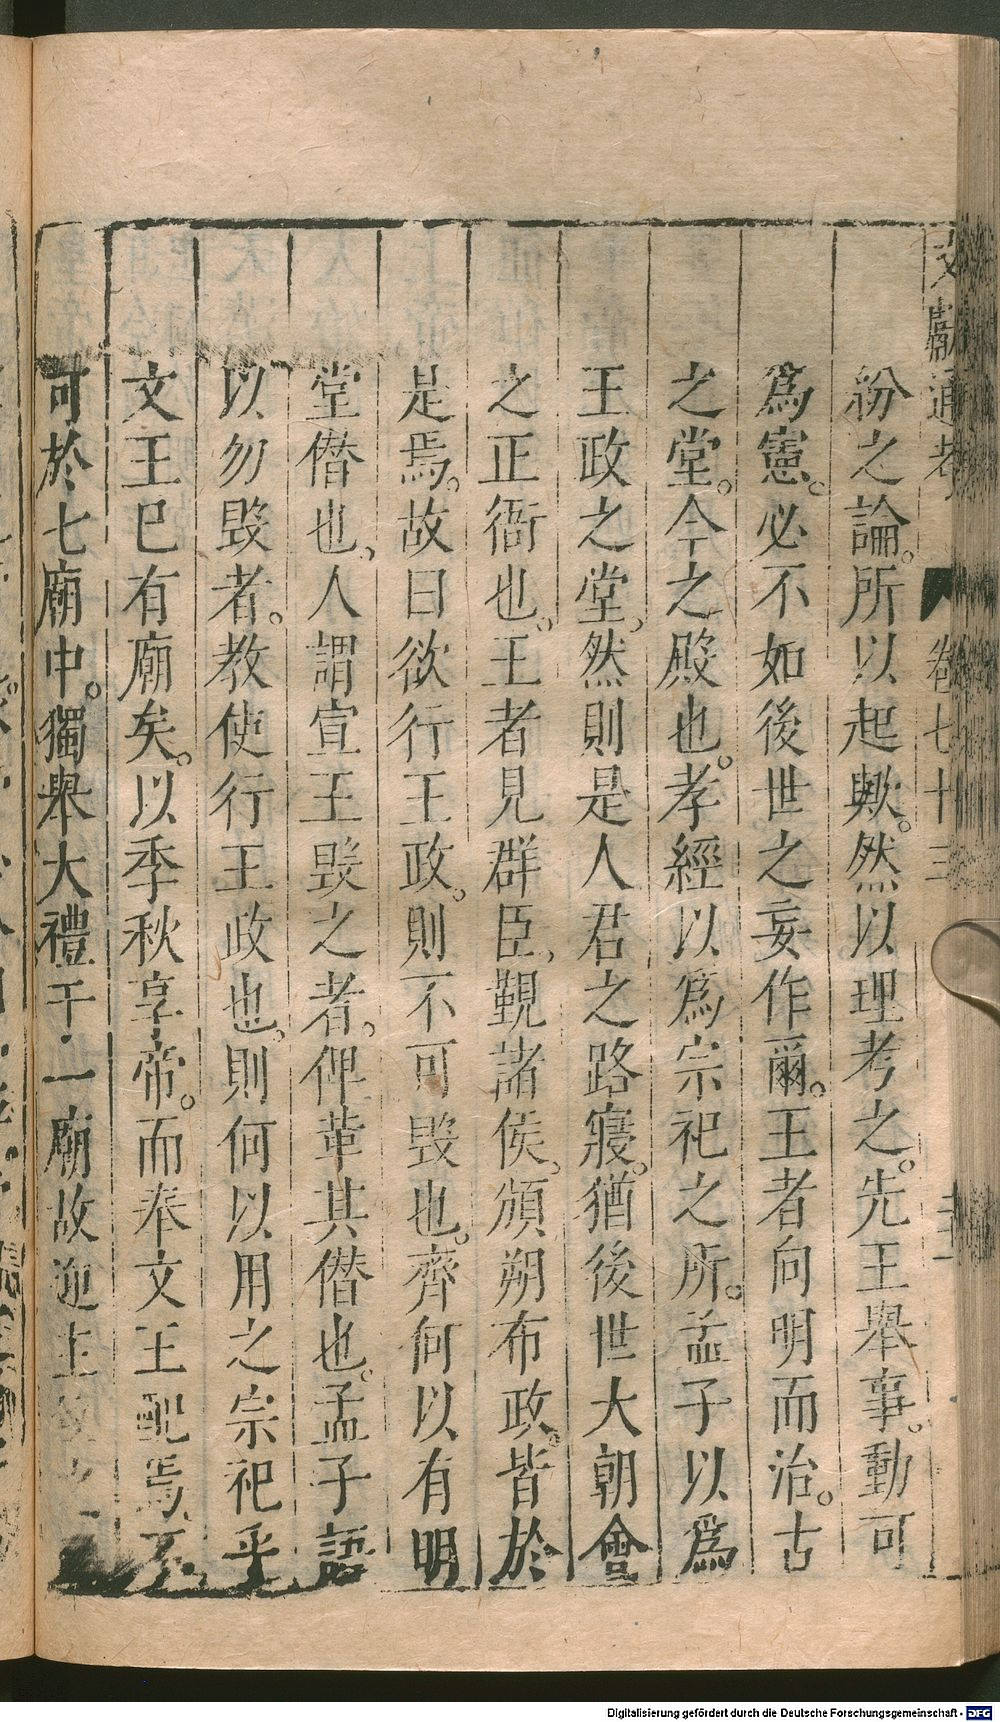 文獻通考　卷七十三
紛之論。所以起歟。然以理考之。先王舉事。動可
爲憲。必不如後世之妄作爾。王者向明而治。古
之堂。今之殿也。孝經以爲宗祀之所。孟子以爲
王政之堂。然則是人君之路寢。猶後世大朝會
之正衙也。王者見群臣、覲諸侯、頒朔布政。皆於
是焉。故曰欲行王政。則不可毀也。齊何以有明
堂僭也、人謂宣王毀之者。俾革其僭也。孟子語
以勿毀者。教使行王政也。則何以用之宗祀乎
文王巳有廟矣。以季秋享帝。而奉文王配焉、不
可於七廟中。獨舉大禮于一廟故迎主
Digitalisierung gefördert durch die Deutsche Forschungsgemeinschaft - DFG